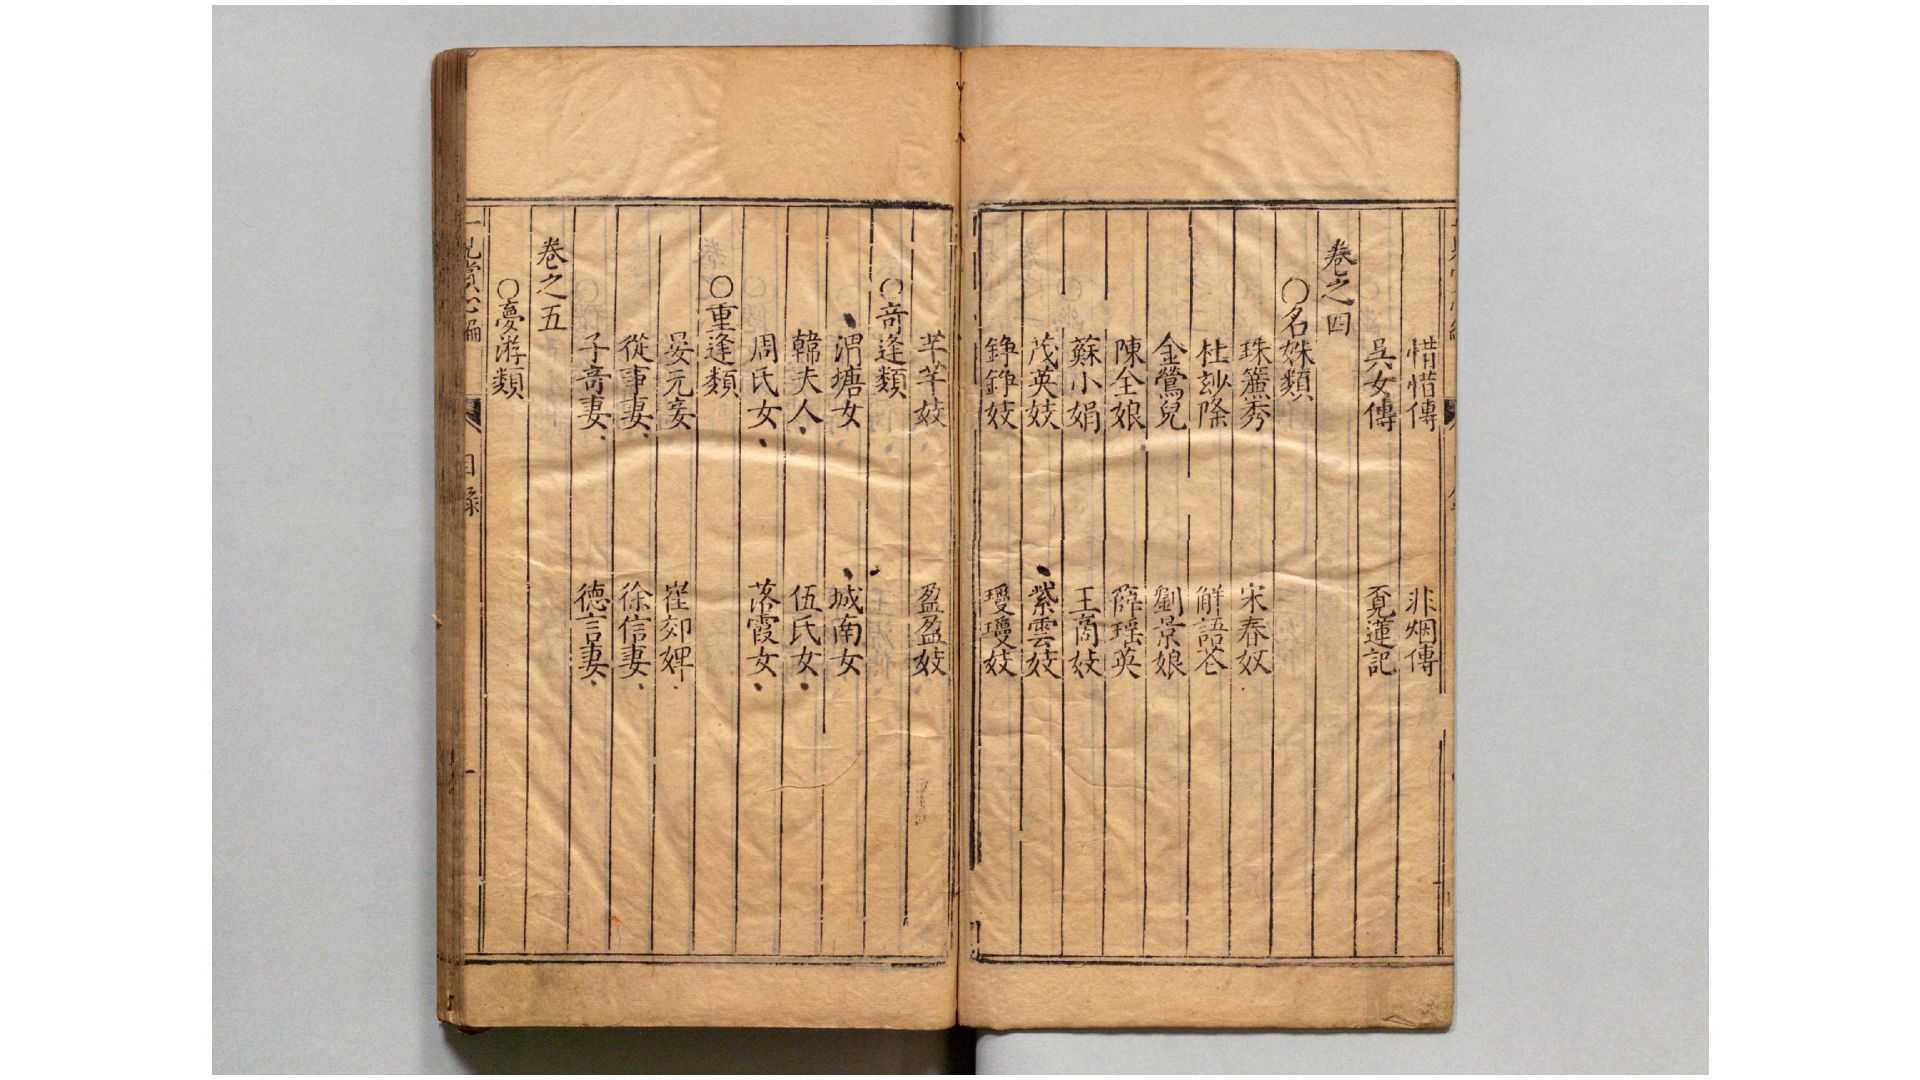 惜惜傳 非烟傳
吳女傳 覓蓮記
卷之四
○名姝類
珠簾秀 宋春奴
杜玅隆 解語花
金鶯兒 劉景娘
陳全娘 薛瑶英
蘇小娟 王高妓
茂英妓 紫雲妓
錚錚妓 瓊瓊妓
芊芊妓 盈盈妓
○奇逢類
渭塘女 城南女
韓夫人 伍氏女
周氏女 落霞女
○重逢類
晏元妾 崔郊婢
從事妻 徐信妻
子奇妻 德言妻
卷之五
○夢游類
一見賞心編 目錄